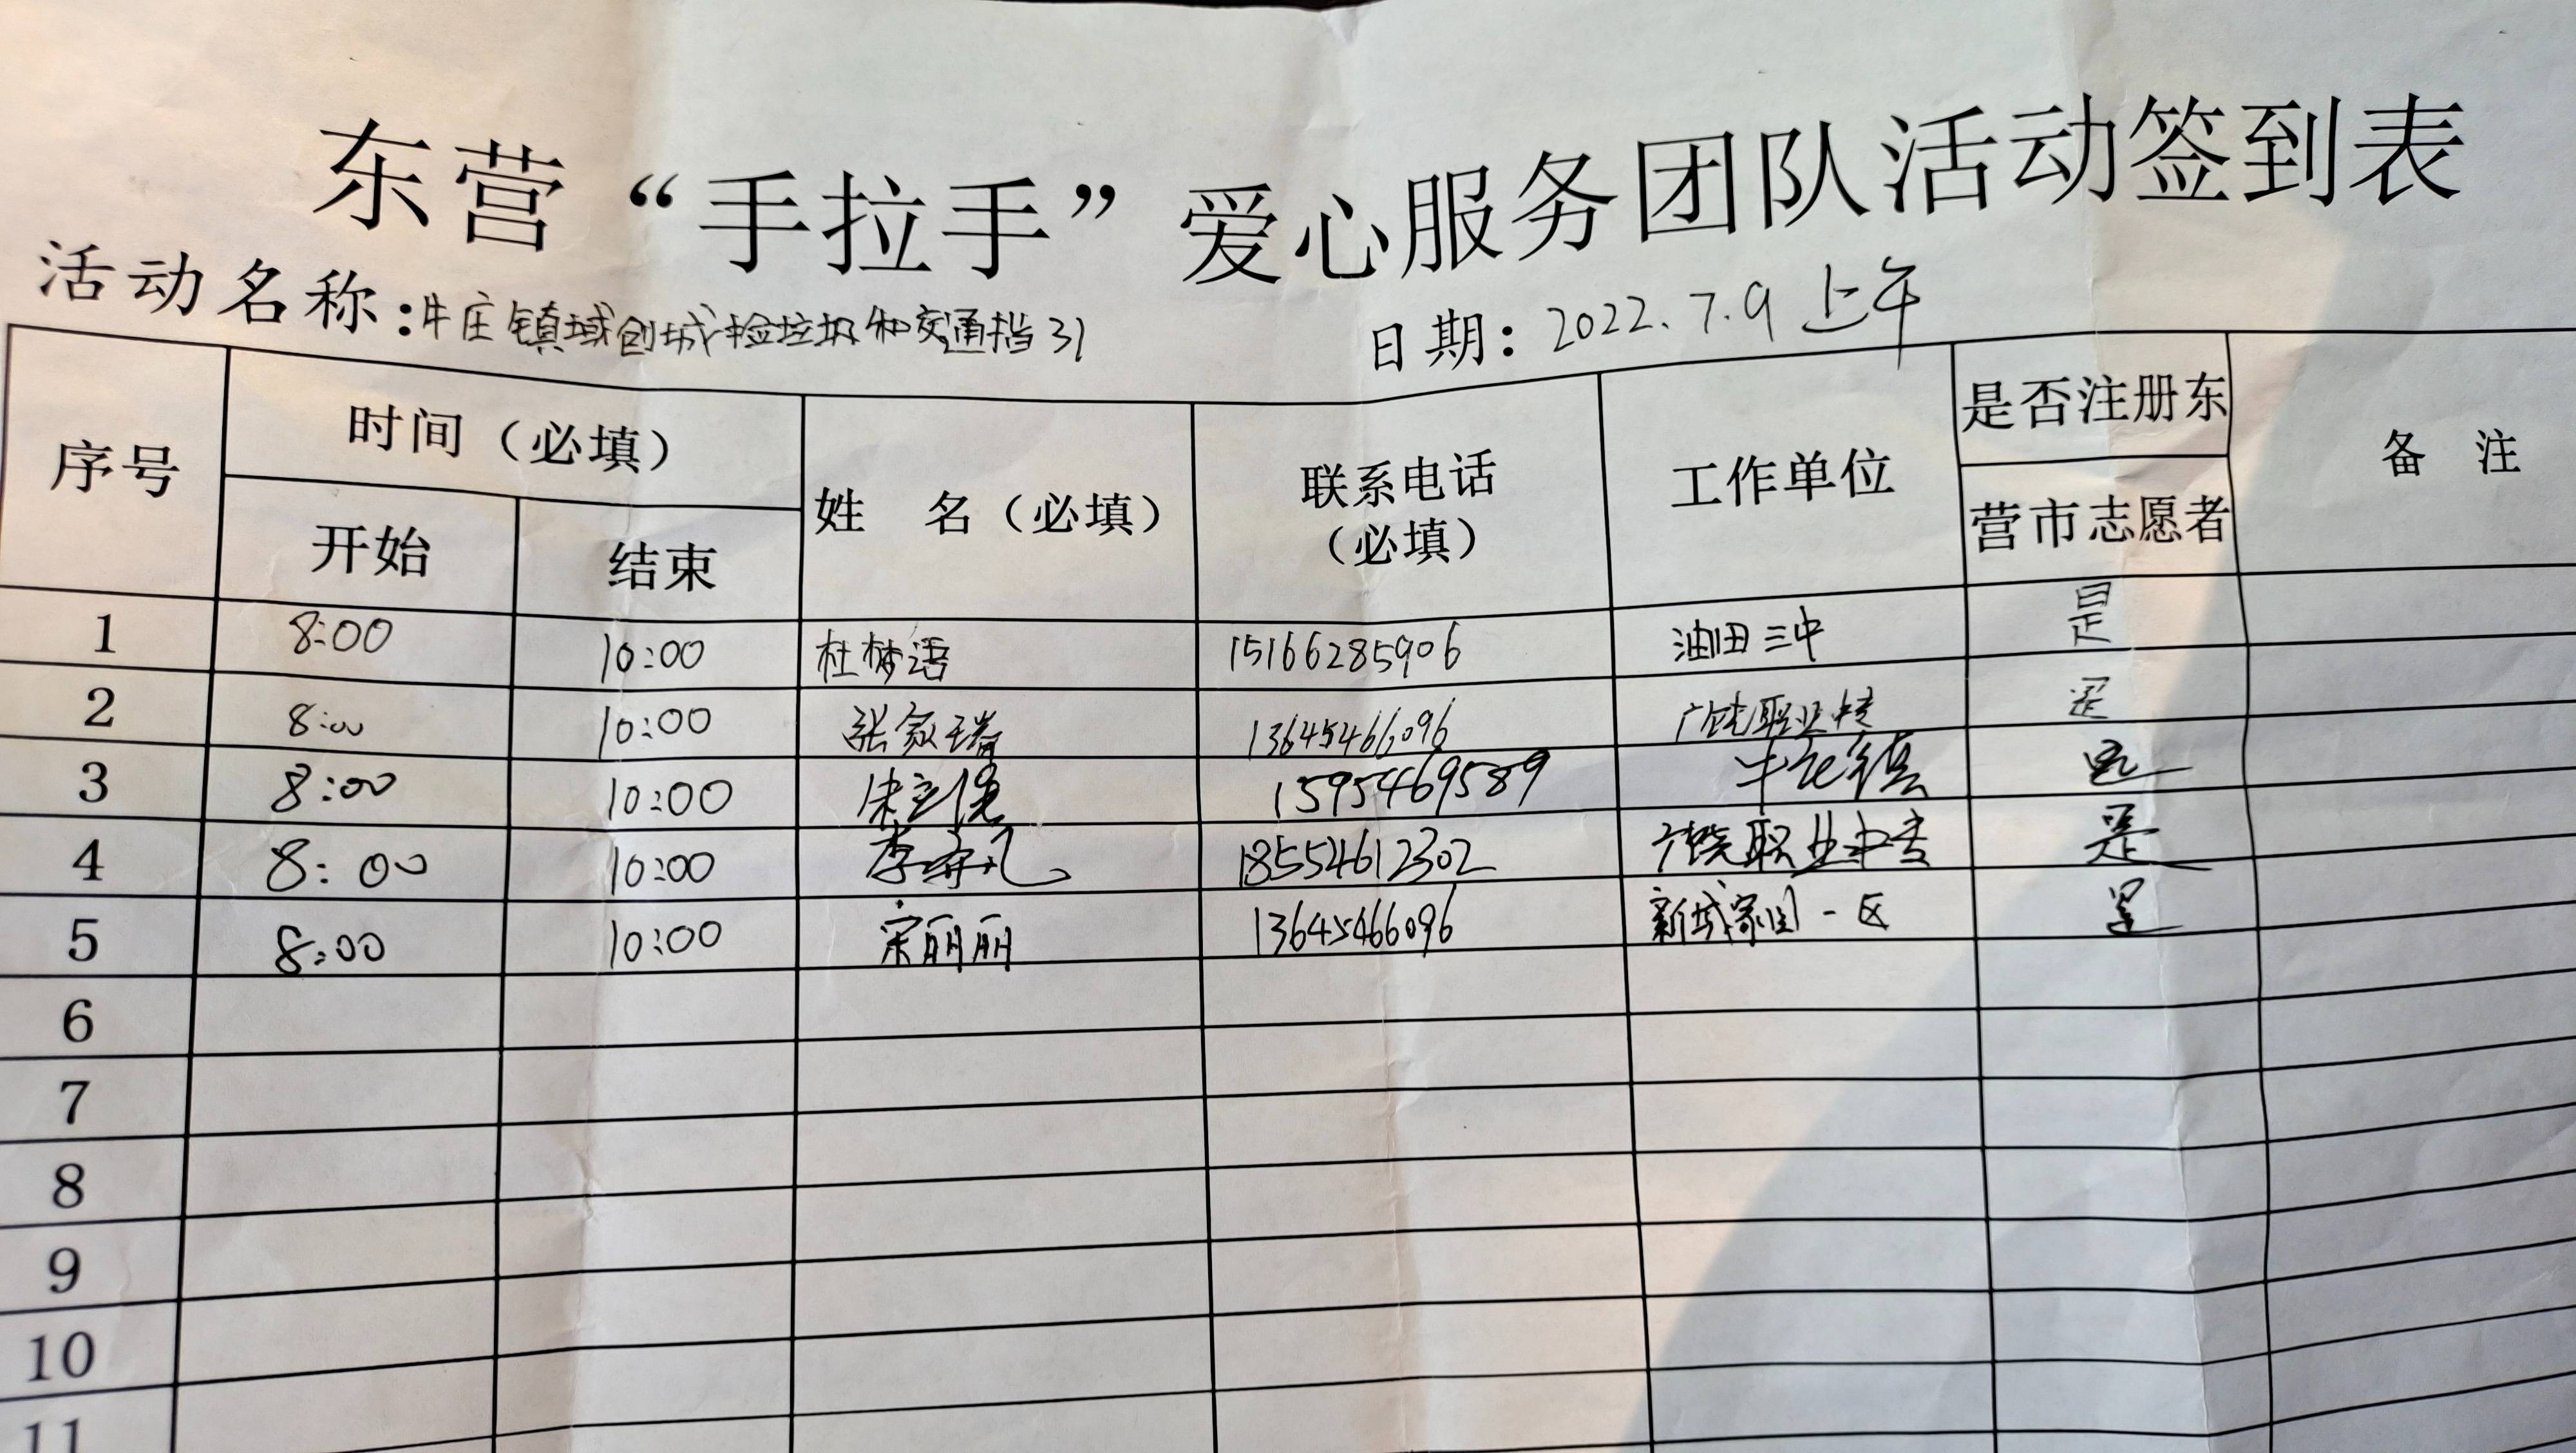 东营“手拉手”爱心服务团队活动签到表
活动名称：牛庄镇域创城捡垃圾和交通指引 日期：2022.7.9 上午
序号 时间（必填） 姓 名（必填） 联系电话（必填） 工作单位 是否注册东营市志愿者 备 注
开始 结束
1 8:00 10:00 杜梦语 15166285906 油田三中 是
2 8:00 10:00 张家瑞 13645466096 广饶职业中专 是
3 8:00 10:00 15954469589 牛庄镇 是
4 8:00 10:00 李 18554612302 广饶职业中专 是
5 8:00 10:00 宋丽丽 13645466096 新城家园一区 是
6
7
8
9
10
11